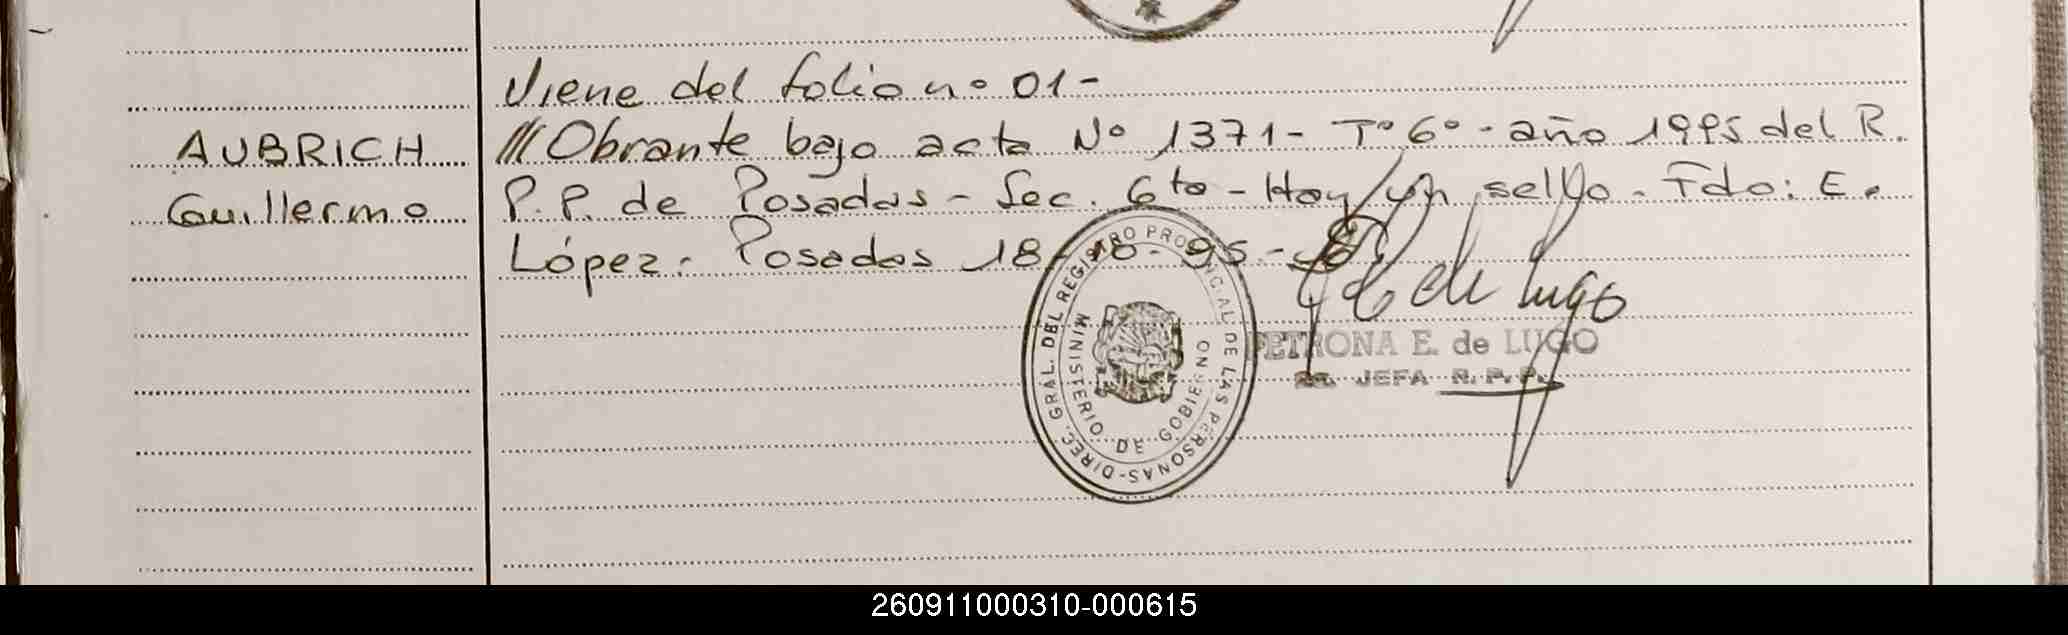 Viene del folio nº 01-
AUBRICH
/// Obrante bajo acta Nº 1371- Tº 6º - año 1995 del R.
Guillermo
P.P. de Posadas - Sec. 6ta - Hay un sello - Fdo: E.
López. Posadas 18-10-95-
DIREC. GRAL. DEL REGISTRO PROVINCIAL DE LAS PERSONAS-
MINISTERIO DE GOBIERNO
P E de Lugo
PETRONA E. de LUGO
2a. JEFA R. P. P.
260911000310-000615